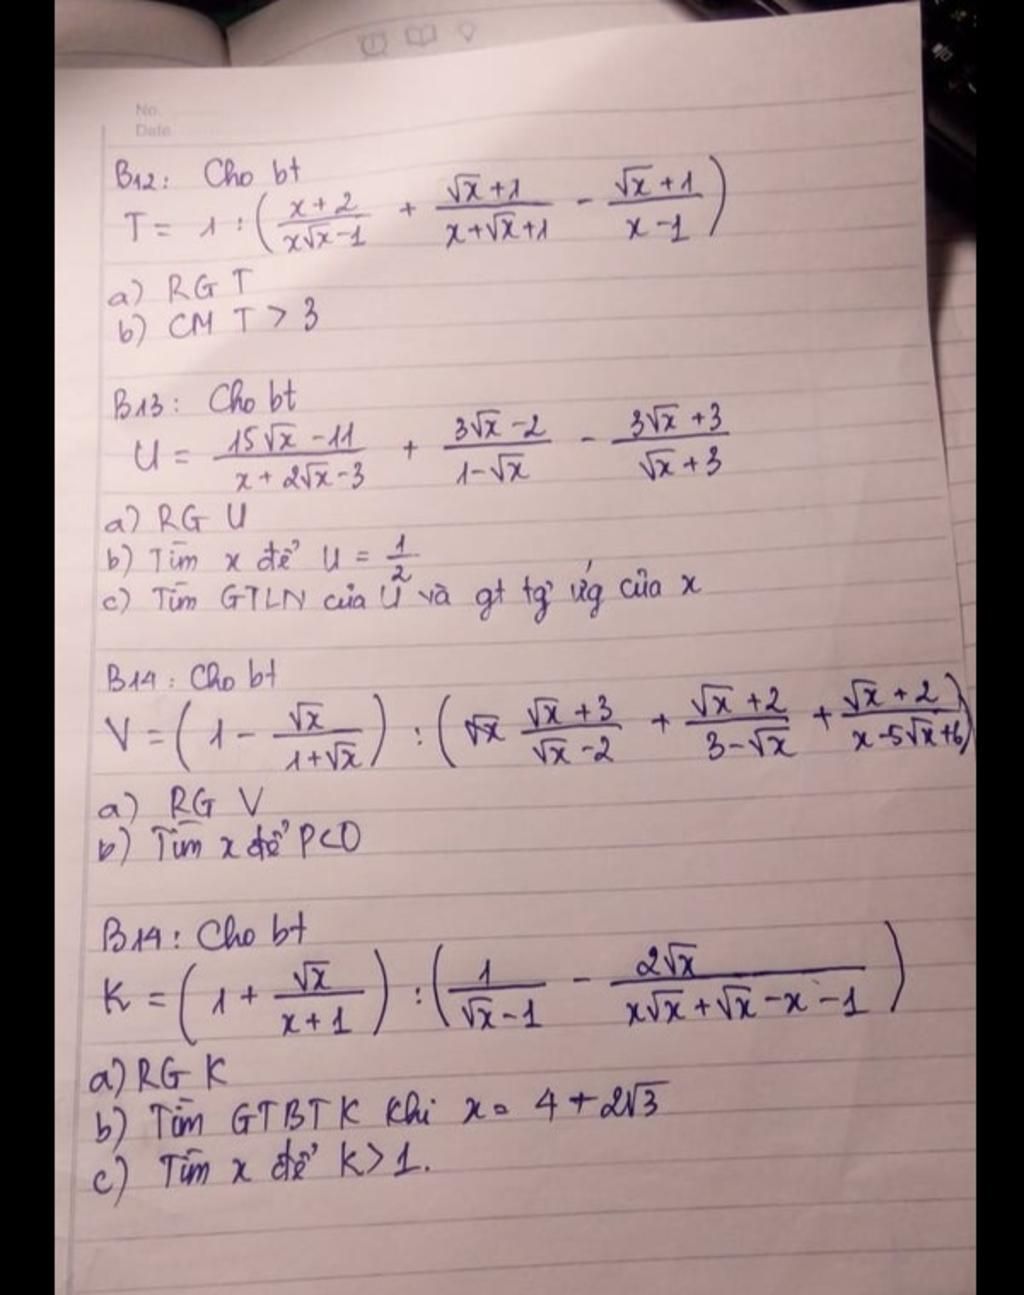 No.
Date
B12: Cho bt
T = 1 : ( (x + 2)/(x√x - 1) + (√x + 1)/(x + √x + 1) - (√x + 1)/(x - 1) )
a) RG T
b) CM T > 3
B13: Cho bt
U = (15√x - 11)/(x + 2√x - 3) + (3√x - 2)/(1 - √x) - (3√x + 3)/(√x + 3)
a) RG U
b) Tìm x để U = 1/2
c) Tìm GTLN của U và gt tg' ứg của x
B14: Cho bt
V = ( 1 - √x/(1 + √x) ) : ( (√x + 3)/(√x - 2) + (√x + 2)/(3 - √x) + (√x + 2)/(x - 5√x + 6) )
a) RG V
b) Tìm x để P < 0
B14: Cho bt
K = ( 1 + √x/(x + 1) ) : ( 1/(√x - 1) - 2√x/(x√x + √x - x - 1) )
a) RG K
b) Tìm GTBT K khi x = 4 + 2√3
c) Tìm x để K > 1.